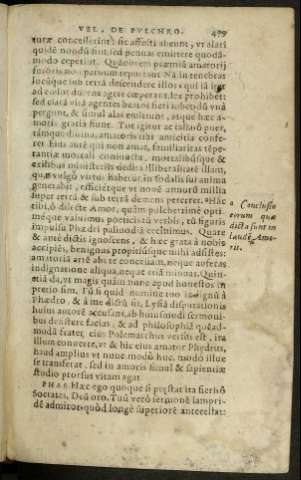 VEL, DE PVLCHRO. 499
turæ concesserint: sic affecti abeunt, vt alati
quidē nondū sint, sed pennas emittere quodā-
modo cœperint. Quāobrem præmiū amatorij
furoris non paruum reportant. Nā in tenebras
sub terrā descendere illos, qui iā iter
ad cœlū agere cœperant, lex prohibet:
sed clarā vitā agentes beatos fieri iubet, dū vnā
pergunt, & simul alas emittunt, atque hæc a-
moris gratia fiunt. Tot igitur ac talia, ô puer,
tāmque diuina, amatoris tibi amicitia confe-
ret. Eius autē qui non amat, familiaritas tēpe-
rantiæ mortali coniuncta, mortalibúsque &
exilibus ministeriis dedita, illiberalitatē illam,
quā vulgò virtus habetur, in sodalis sui animo
generabit, efficiétque vt nouē annorū millia
super terrā & sub terrā demens peterret. a Hæc
tibi, ô dilecte Amor, quàm pulcherrimè opti-
méque valuimus poëticis tū verbis, tū figuris
impulsu Phædri palinodia cecinimus. Quare
& antè dictis ignoscens, & hæc grata à nobis
accipiēs, benignus propitiúsque mihi adsistes:
amatoriā artē abs te concessam, neque auferas
indignatione aliqua, neque etiā minuas. Quin-
etiā da, vt magis quàm nunc apud honestos in
pretio sim. Tū si quid nomine tuo indignū à
Phædro, & à me dictū sit, Lysiā disputationis
huius autorē accusans, ab huiusmodi sermoni-
bus desistere facias, & ad philosophiā quēad-
modū frater eius Polemarchus versus est, ita
illum conuerte, vt & hic eius amator Phædrus,
haud amplius vt nunc modò huc, modò illuc
se transferat, sed in amoris simul & sapientiæ
studio prorsus vitam agat.
PHAE. Hæc ego quoque si præstat ita fieri, ô
Socrates, Deū oro. Tuū verò sermonē iampri-
dē admiror, quòd longè superiorē antecellat:
a Conclusio
eorum quæ
dicta sunt in
laudē Amo-
ris.